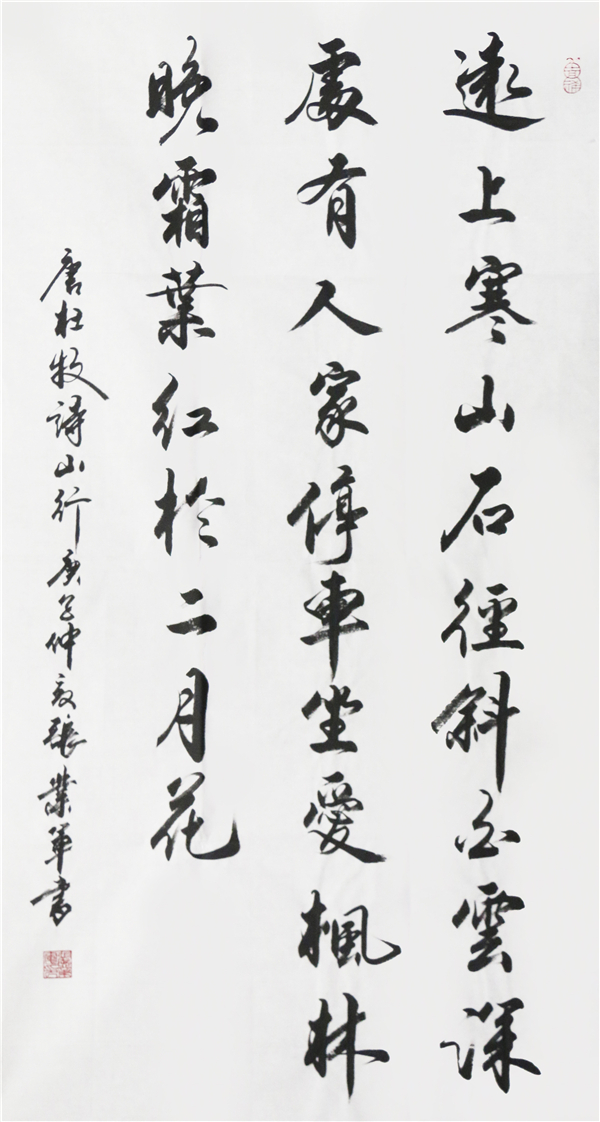 遠上寒山石徑斜白雲深
處有人家停車坐愛楓林
晚霜葉紅於二月花
唐杜牧詩山行庚子仲夏張業軍書